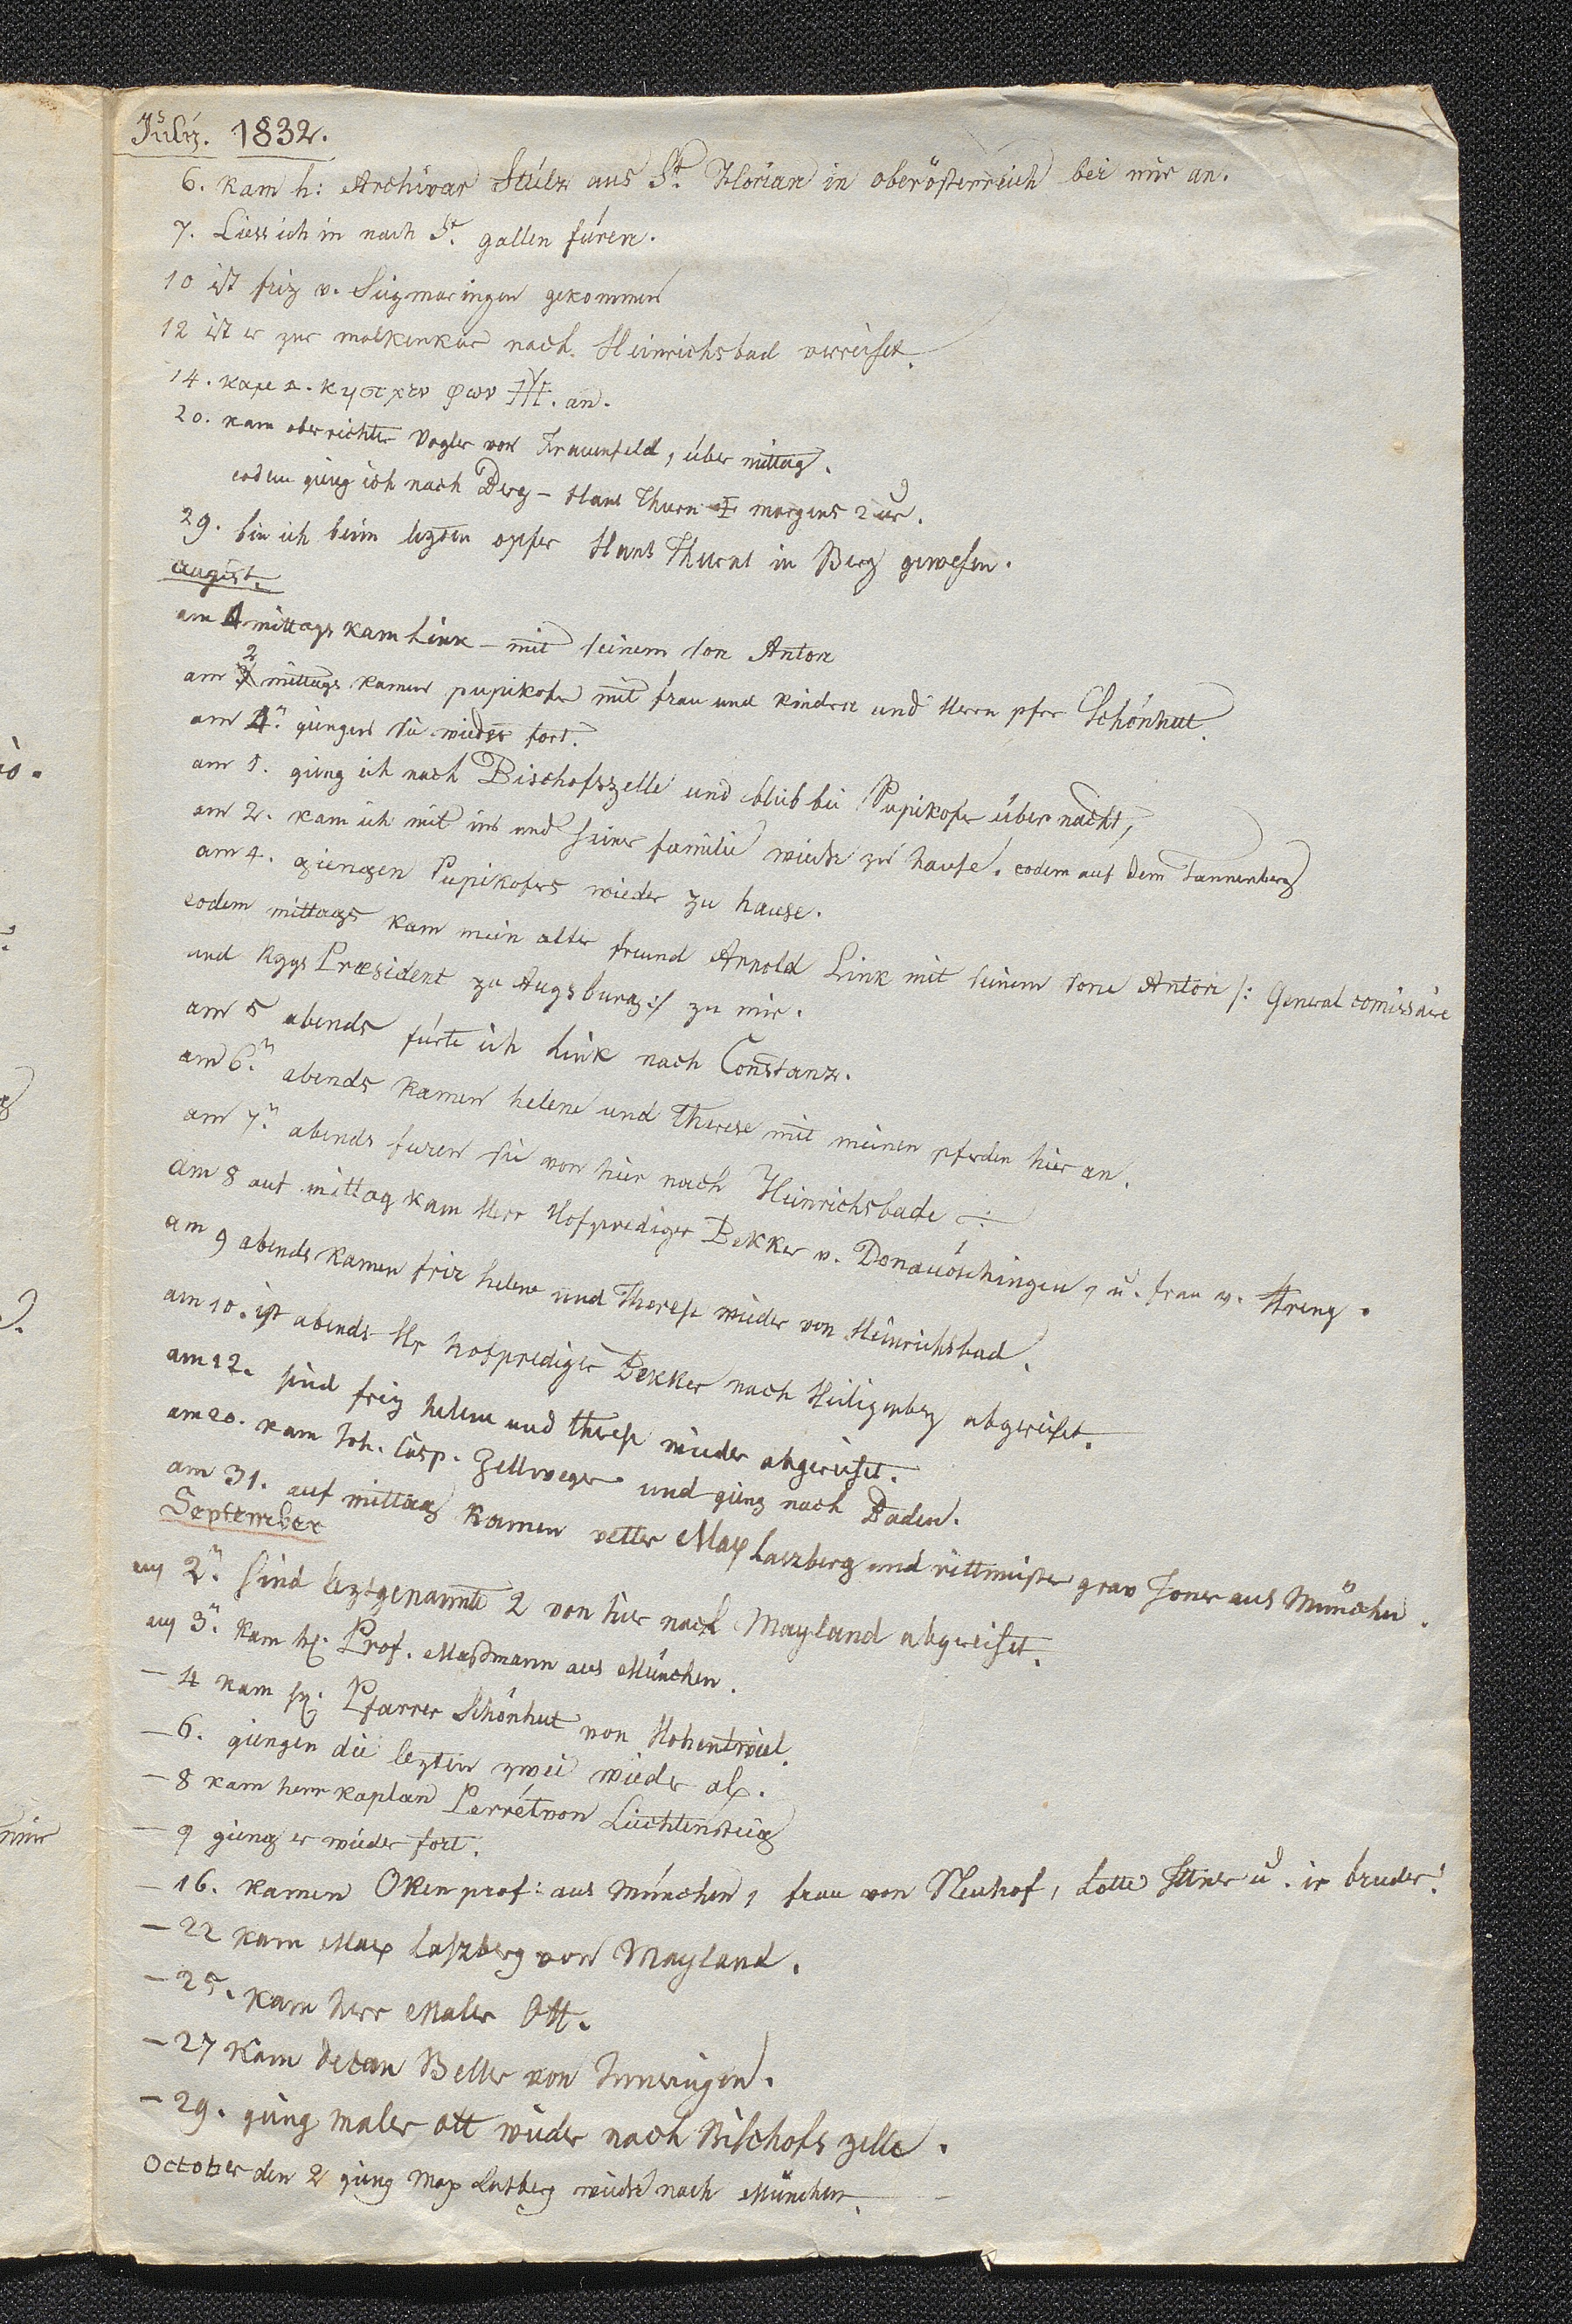 July. 1832.
6. kam h: Archivar Stülz aus St. Florian in oberösterreich bei mir an.
7. Liess ich in nach St. gallen füren.
10 ist friz v. Sigmaringen gekommen
12 ist er zur molkenkur nach Heinrichsbad verreiset.
14. καμ φων an.
20. kam oberrichter Vogler von Frauenfeld, über mittag.
eodem gieng ich nach Berg – Hans Thurn morgens 2 ur.
29. bin ich beim lezten opfer Hans Thurns in Berg gewesen.
august.
am 4 mittags kam Link – mit seinem son Anton
am 2 mittags kamen pupikofer mit frau und kindern und Herrn pfrr Schönhut.
am 4n. giengen sie wieder fort.
am 1. gieng ich nach Bischofszelle und blieb bei Pupikofer über nacht,
am 2. kam ich mit im und seiner familie wieder zu hause. eodem auf dem Tannenberg
am 4. giengen Pupikofers wieder zu hause.
eodem mittags kam mein alter freund Arnold Link mit seinem sone Anton /: General comissaire
und Rggs Præsident zu Augsburg :/ zu mir.
am 5 abends fürte ich Link nach Constanz.
am 6n. abends kamen helene und Therese mit meinen pferden hier an.
am 7n. abends furen sie von hier nach Heinrichsbade –:
am 8 auf mittag kam Herr Hofprediger Bekker v. Donauöschingen, u. frau v. Streng.
am 9 abends kamen friz helene und Therese wieder von Heinrichsbad.
am 10. ist abends Hr hofprediger Bekker nach Heiligenberg abgereiset.
am 12. sind friz helene und therese wieder abgereiset.
am 20. kam Joh. Casp. Zellweger und gieng nach Baden.
am 31. auf mittag kamen vetter Max Laszberg und rittmeister grav Joner aus München.
September
am 2n. sind leztgenannte 2 von hier nach Mayland abgereiset.
am 3n. kam hr. Prof. Maßmann aus München.
– 4 kam hr. Pfarrer Schönhut von Hohentwiel.
– 6. giengen die lezten zwei wieder ab.
– 8 kam herr kaplan Perrét von Liechtensteig
– 9 gieng er wieder fort.
– 16. kamen Oken prof: aus München, frau von Neuhof, Lotte Ittner u. ir bruder.
– 22 kam Max Laszberg von Mayland.
– 25. kam herr Maler Ott.
– 27 kam dekan Beller von Inneringen.
– 29. gieng maler ott wieder nach Bischofszelle.
October den 2 gieng Max Lasberg wieder nach München. –